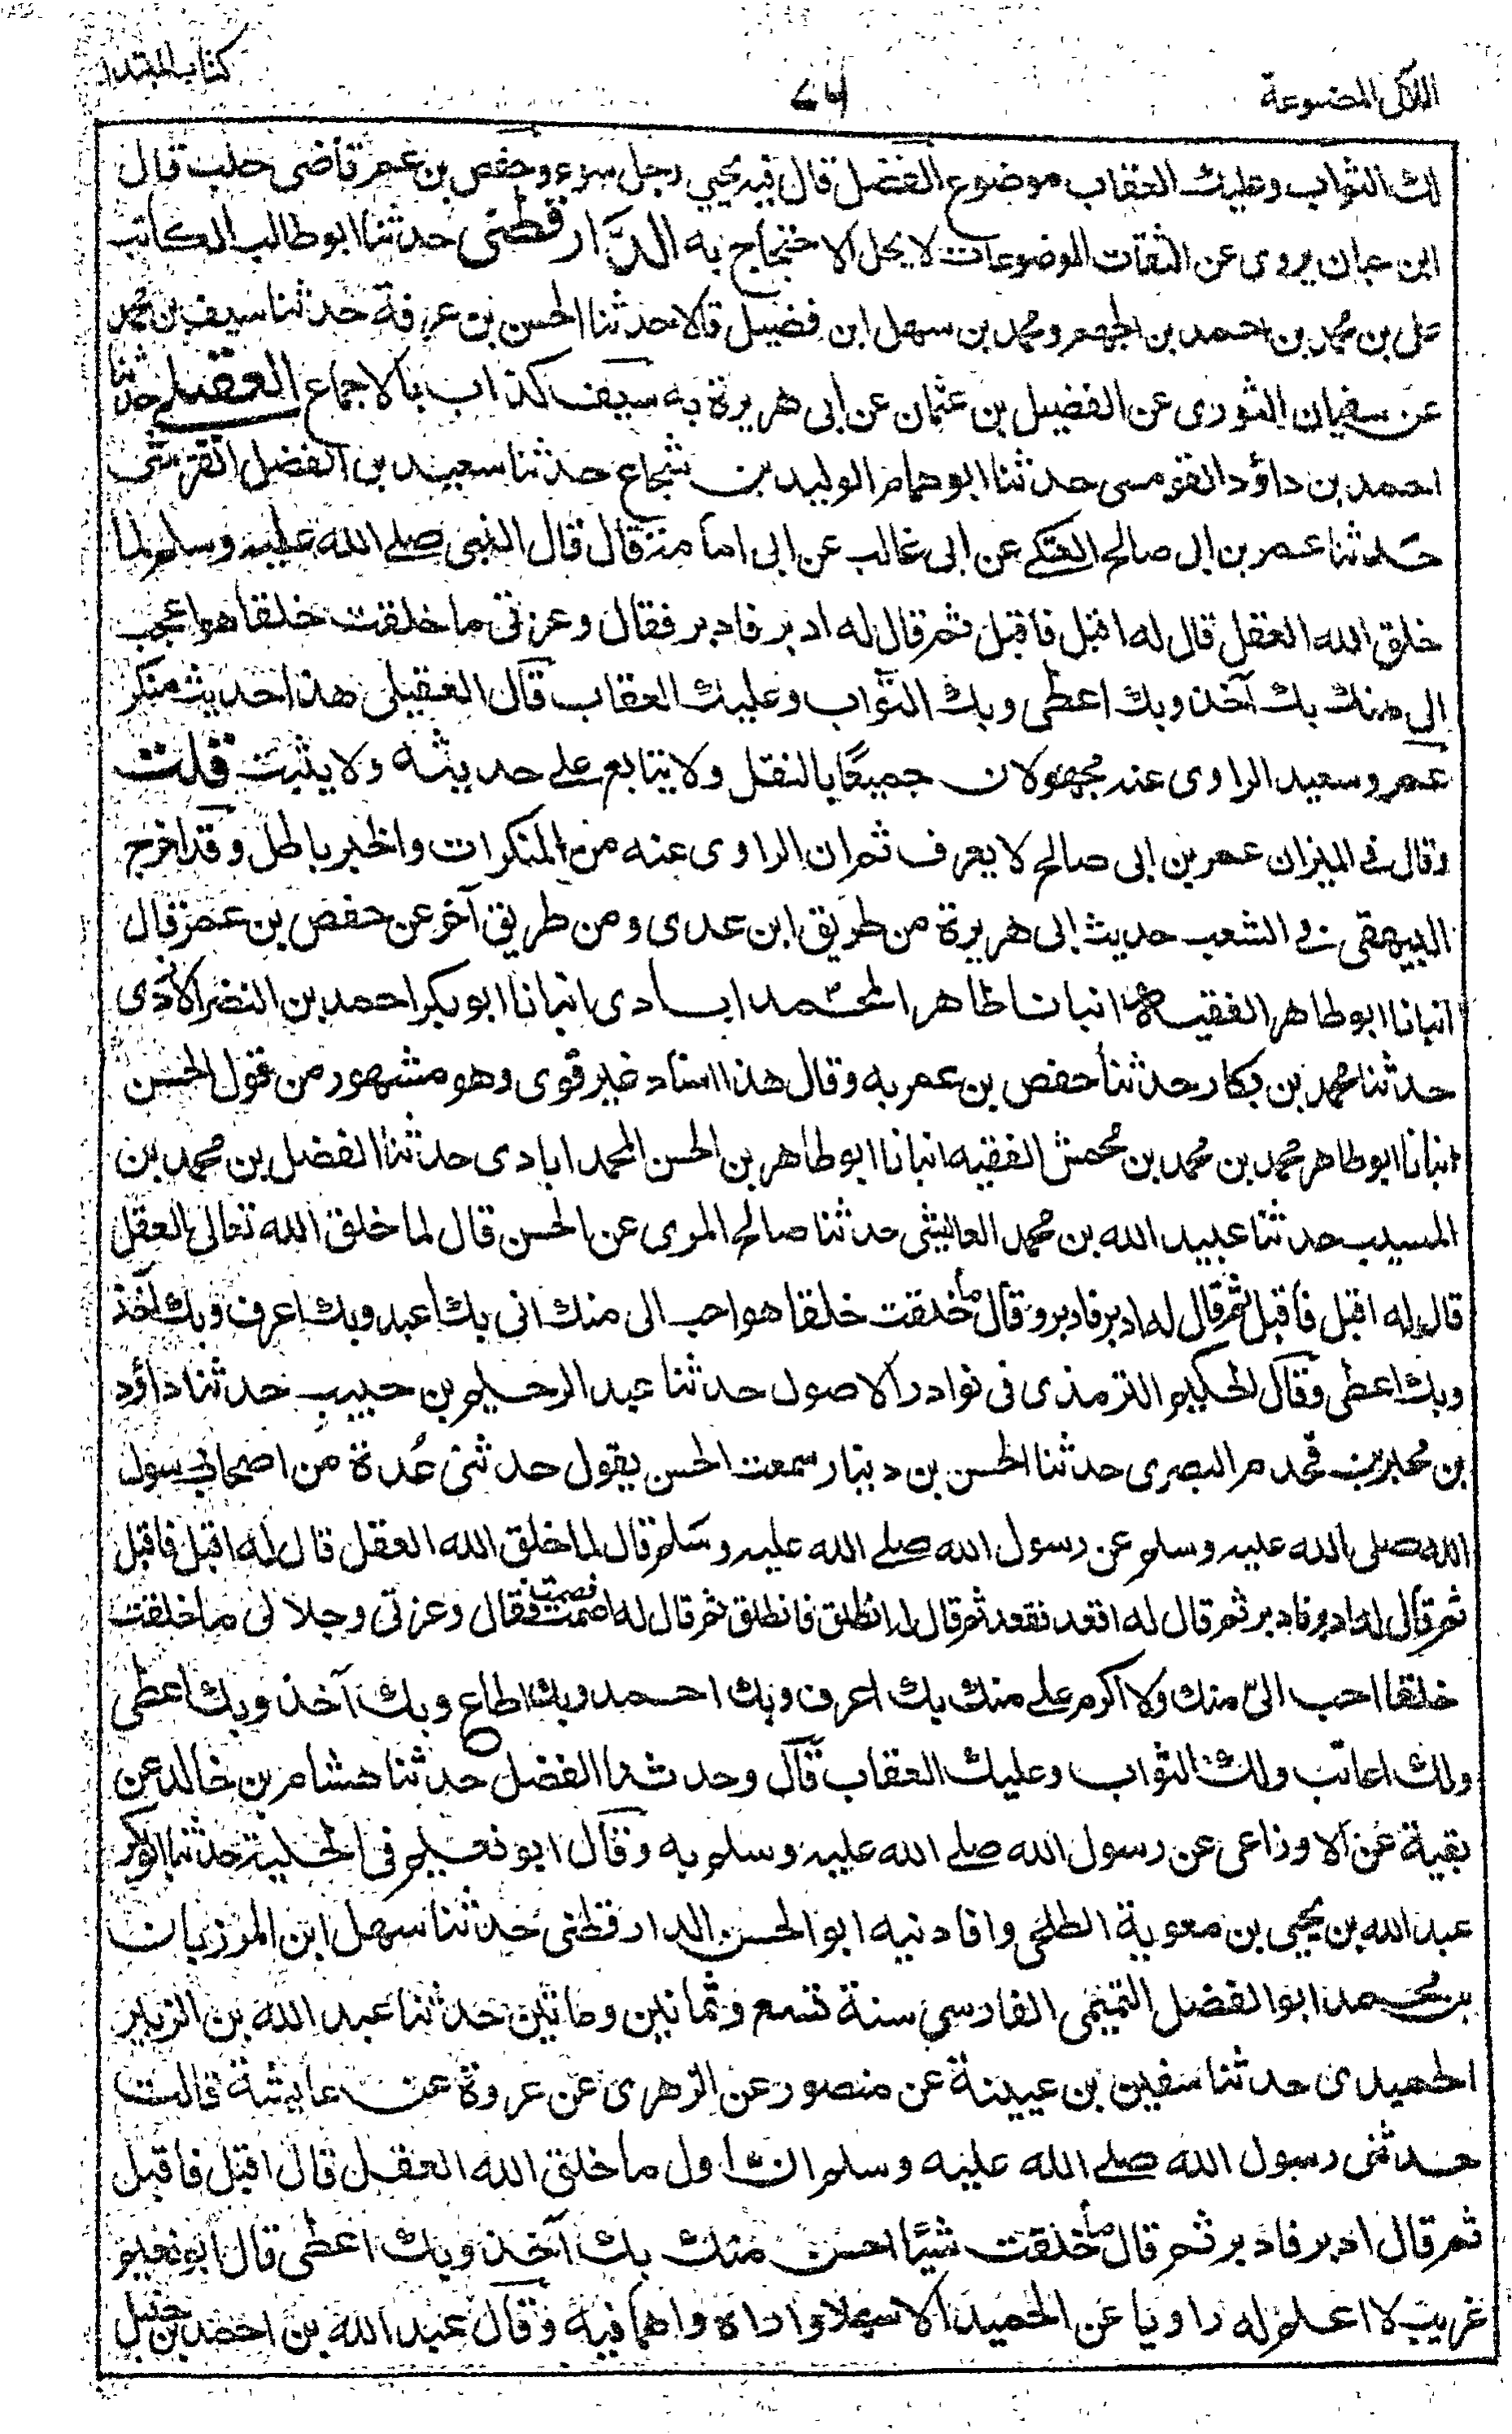 اللآلی المصنوعة
٦٤
کتاب المبتدا
لك الثواب وعليك العقاب موضوع الفضل قال فيه يحيي رجل سوء وحفص بن عمر قاضى حلب قال
ابن حبان يروى عن الثقات الموضوعات لا يحل الاحتجاج به الدَّارقطنى حدثنا ابو طالب الكاتب
على بن محمد بن احمد بن الجهم ومحمد بن سهل ابن فضيل قالا حدثنا الحسن بن عرفة حدثنا سيف بن محمد
عن سفيان الثورى عن الفضيل بن عثمان عن ابى هريرة به سيف كذاب بالاجماع العقيلے حدثنا
احمد بن داؤد القومسى حدثنا ابو همام الوليد بن شجاع حدثنا سعيد بن الفضل القرشى
حدثنا عمر بن ابى صالح العتكے عن ابى غالب عن ابى امامة قال قال النبى صلے الله عليه وسلم لما
خلق الله العقل قال له اقبل فاقبل ثم قال له ادبر فادبر فقال وعزتى ما خلقت خلقا هو اعجب
الى منك بك آخذ وبك اعطى وبك الثواب وعليك العقاب قال العقيلى هذا حديث منكر
عمر وسعيد الراوى عنه مجهولان جميعًا بالنقل ولا يتابع علے حديثه ولا يثبت قلت
وقال فى الميزان عمر بن ابى صالح لا يعرف ثم ان الراوى عنه من المنكرات والخبر باطل وقد اخرج
البيهقى فى الشعب حديث ابى هريرة من طريق ابن عدى ومن طريق آخر عن حفص بن عمر فقال
انبانا ابو طاهر الفقيه انبانا طاهر المحمدابادى انبانا ابو بكر احمد بن النضر الازدى
حدثنا محمد بن بكار حدثنا حفص بن عمر به وقال هذا اسناد غير قوى وهو مشهور من قول الحسن
انبانا ابو طاهر محمد بن محمد بن محمش الفقيه انبانا ابو طاهر بن الحسن المحمدابادى حدثنا الفضل بن محمد بن
المسيب حدثنا عبيد الله بن محمد العائيشى حدثنا صالح المرى عن الحسن قال لما خلق الله تعالى العقل
قال له اقبل فاقبل ثم قال له ادبر فادبر وقال ما خلقت خلقا هو احب الى منك انى بك اعبد وبك اعرف وبك آخذ
وبك اعطى وقال الحكيم الترمذى فى نوادر الاصول حدثنا عبد الرحيم بن حبيب حدثنا داؤد
بن محبر بن قحذم البصرى حدثنا الحسن بن دينار سمعت الحسن يقول حدثنى عُدة من اصحاب رسول
الله صلى الله عليه وسلم عن رسول الله صلے الله عليه وسلم قال لما خلق الله العقل قال له اقبل فاقبل
ثم قال له ادبر فادبر ثم قال له اقعد فقعد ثم قال له انطلق فانطلق ثم قال له اصمت فصمت فقال وعزتى وجلالى ما خلقت
خلقا احب الىّ منك ولا اكرم علے منك بك اعرف وبك احمد وبك اطاع وبك آخذ وبك اعطى
ولك اعاتب ولك الثواب وعليك العقاب قال وحدثنا الفضل حدثنا هشام بن خالد عن
بقية عن الاوزاعى عن رسول الله صلے الله عليه وسلم به وقال ابو نعيم فى الحلية حدثنا ابو بكر
عبد الله بن يحيى بن معوية الطلحى وافادنيه ابو الحسن الدارقطنى حدثنا سهل ابن المرزبان
بن محمد ابو الفضل التميمى الفارسى سنة تسع وثمانين ومائتين حدثنا عبد الله بن الزبير
الحميدى حدثنا سفين بن عيينة عن منصور عن الزهرى عن عروة عن عايشة قالت
حدثنى رسول الله صلے الله عليه وسلم ان اول ما خلق الله العقل قال اقبل فاقبل
ثم قال ادبر فادبر ثم قال ما خلقت شيئا احسن منك بك آخذ وبك اعطى قال ابو نعيم
غريب لا اعلم له راويا عن الحميد الا سهلا واراه واهما فيه وقال عبد الله بن احمد بن حنبل